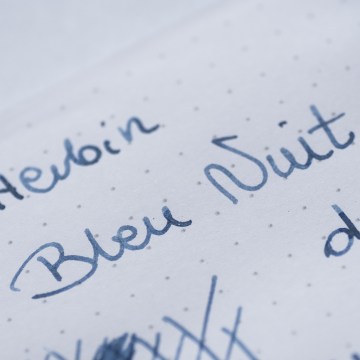 Herbin
Bleu Nuit